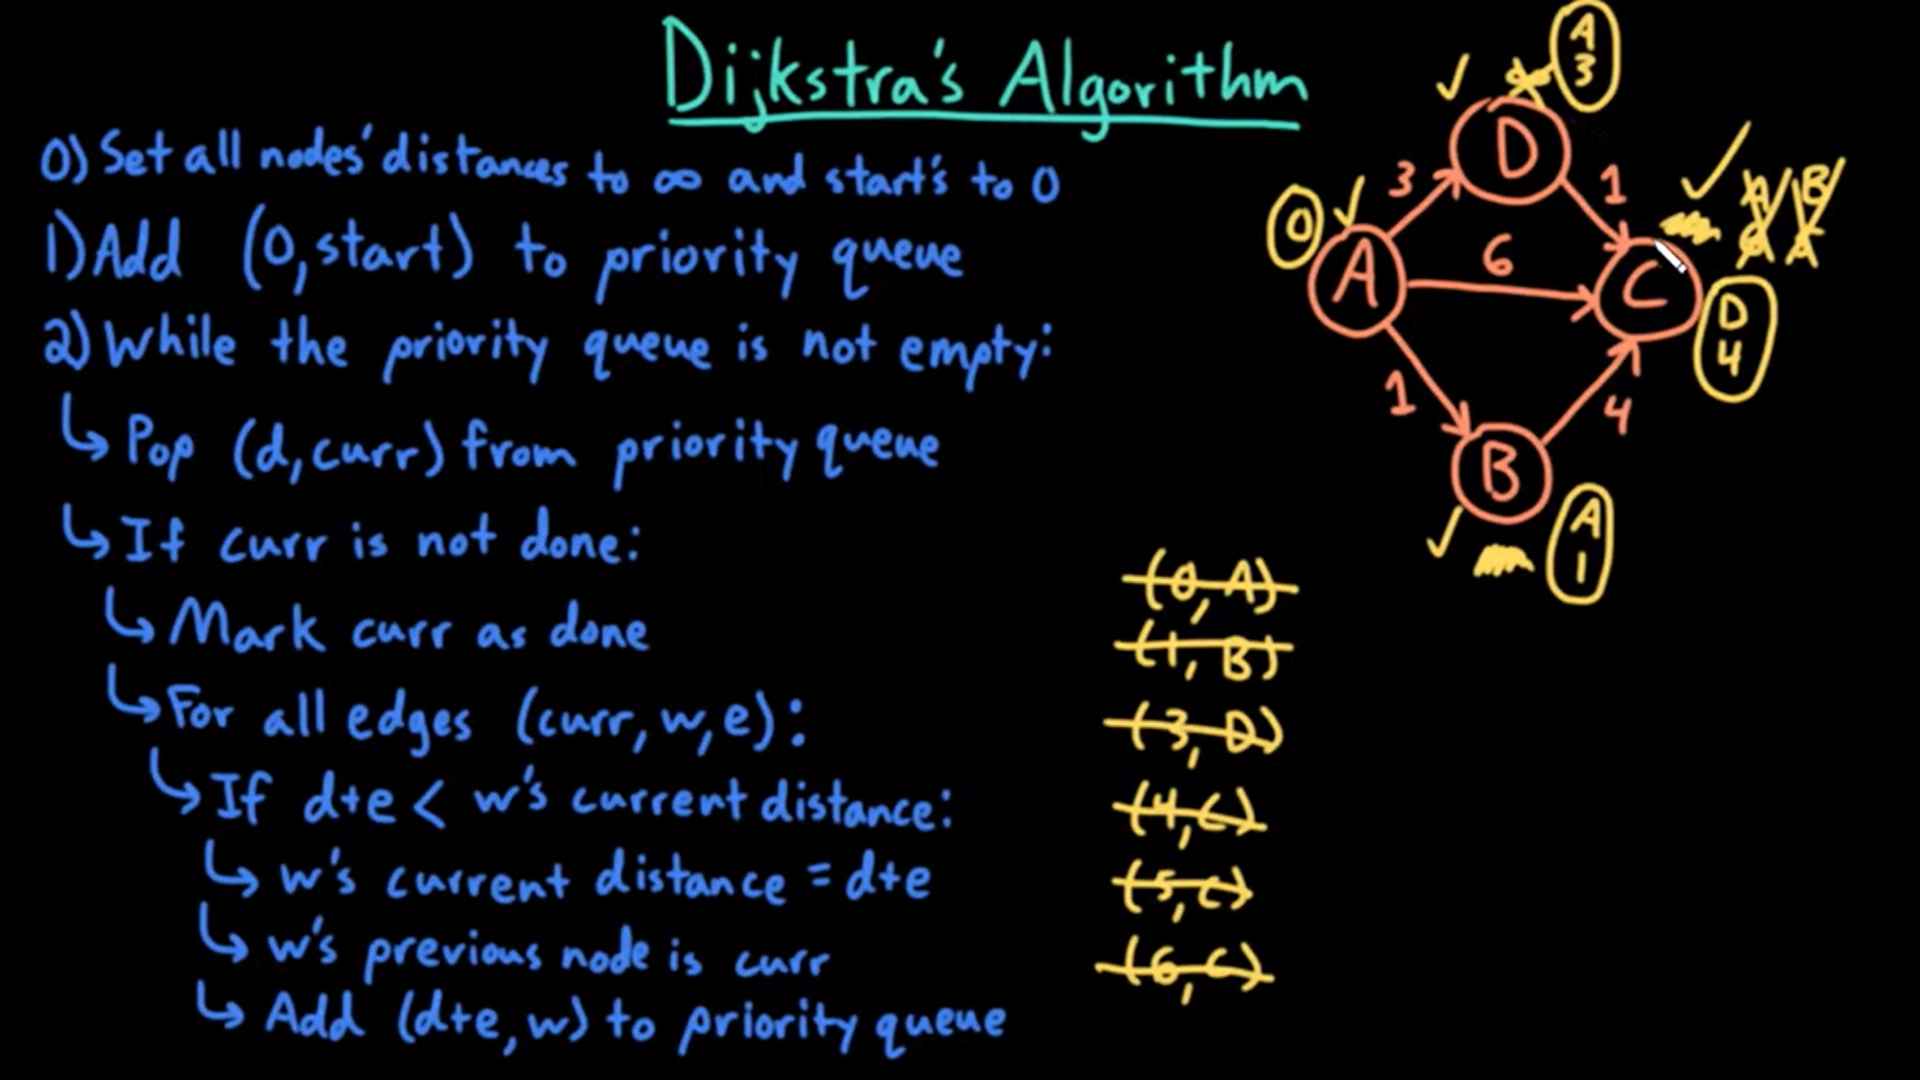 Dijkstra's Algorithm
0) Set all nodes' distances to ∞ and start's to 0
1) Add (0, start) to priority queue
2) While the priority queue is not empty:
↳ Pop (d, curr) from priority queue
↳ If curr is not done:
↳ Mark curr as done
↳ For all edges (curr, w, e):
↳ If d+e < w's current distance:
↳ w's current distance = d+e
↳ w's previous node is curr
↳ Add (d+e, w) to priority queue
A
3
D
3
1
A
B
0
A
6
C
D
4
1
4
B
A
1
(0, A)
(1, B)
(3, D)
(4, C)
(5, C)
(6, C)